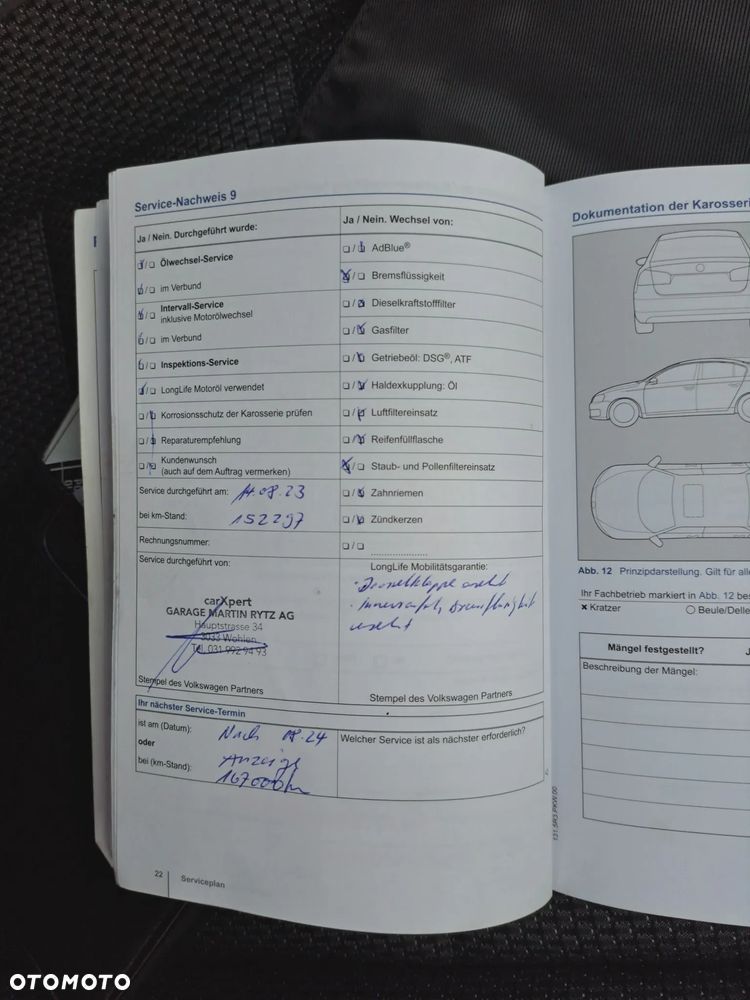 Service-Nachweis 9
Ja / Nein. Durchgeführt wurde:
Ölwechsel-Service
im Verbund
Intervall-Service
inklusive Motorölwechsel
im Verbund
Inspektions-Service
LongLife Motoröl verwendet
Korrosionsschutz der Karosserie prüfen
Reparaturempfehlung
Kundenwunsch
(auch auf dem Auftrag vermerken)
Service durchgeführt am: 14.08.23
bei km-Stand: 152297
Rechnungsnummer:
Service durchgeführt von:
carXpert
GARAGE MARTIN RYTZ AG
Hauptstrasse 34
3033 Wohlen
Tel. 031 992 94 93
Stempel des Volkswagen Partners
Ja / Nein. Wechsel von:
AdBlue®
Bremsflüssigkeit
Dieselkraftstofffilter
Gasfilter
Getriebeöl: DSG®, ATF
Haldexkupplung: Öl
Luftfiltereinsatz
Reifenfüllflasche
Staub- und Pollenfiltereinsatz
Zahnriemen
Zündkerzen
LongLife Mobilitätsgarantie:
ersetzt
Bremsflüssigkeit
ersetzt
Stempel des Volkswagen Partners
Ihr nächster Service-Termin
ist am (Datum): Nach 08.24
oder
Anzeige
bei (km-Stand): 167000km
Welcher Service ist als nächster erforderlich?
22
Serviceplan
Dokumentation der Karosseri
Abb. 12 Prinzipdarstellung. Gilt für alle
Ihr Fachbetrieb markiert in Abb. 12 bes
Kratzer
Beule/Delle
Mängel festgestellt? J
Beschreibung der Mängel:
131.5R3.PKW.00
OTOMOTO